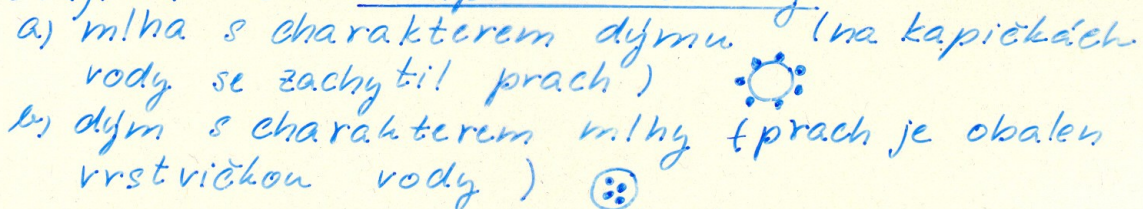 a) mlha s charakterem dýmu (na kapičkách
vody se zachytil prach)
b) dým s charakterem mlhy (prach je obalen
vrstvičkou vody)